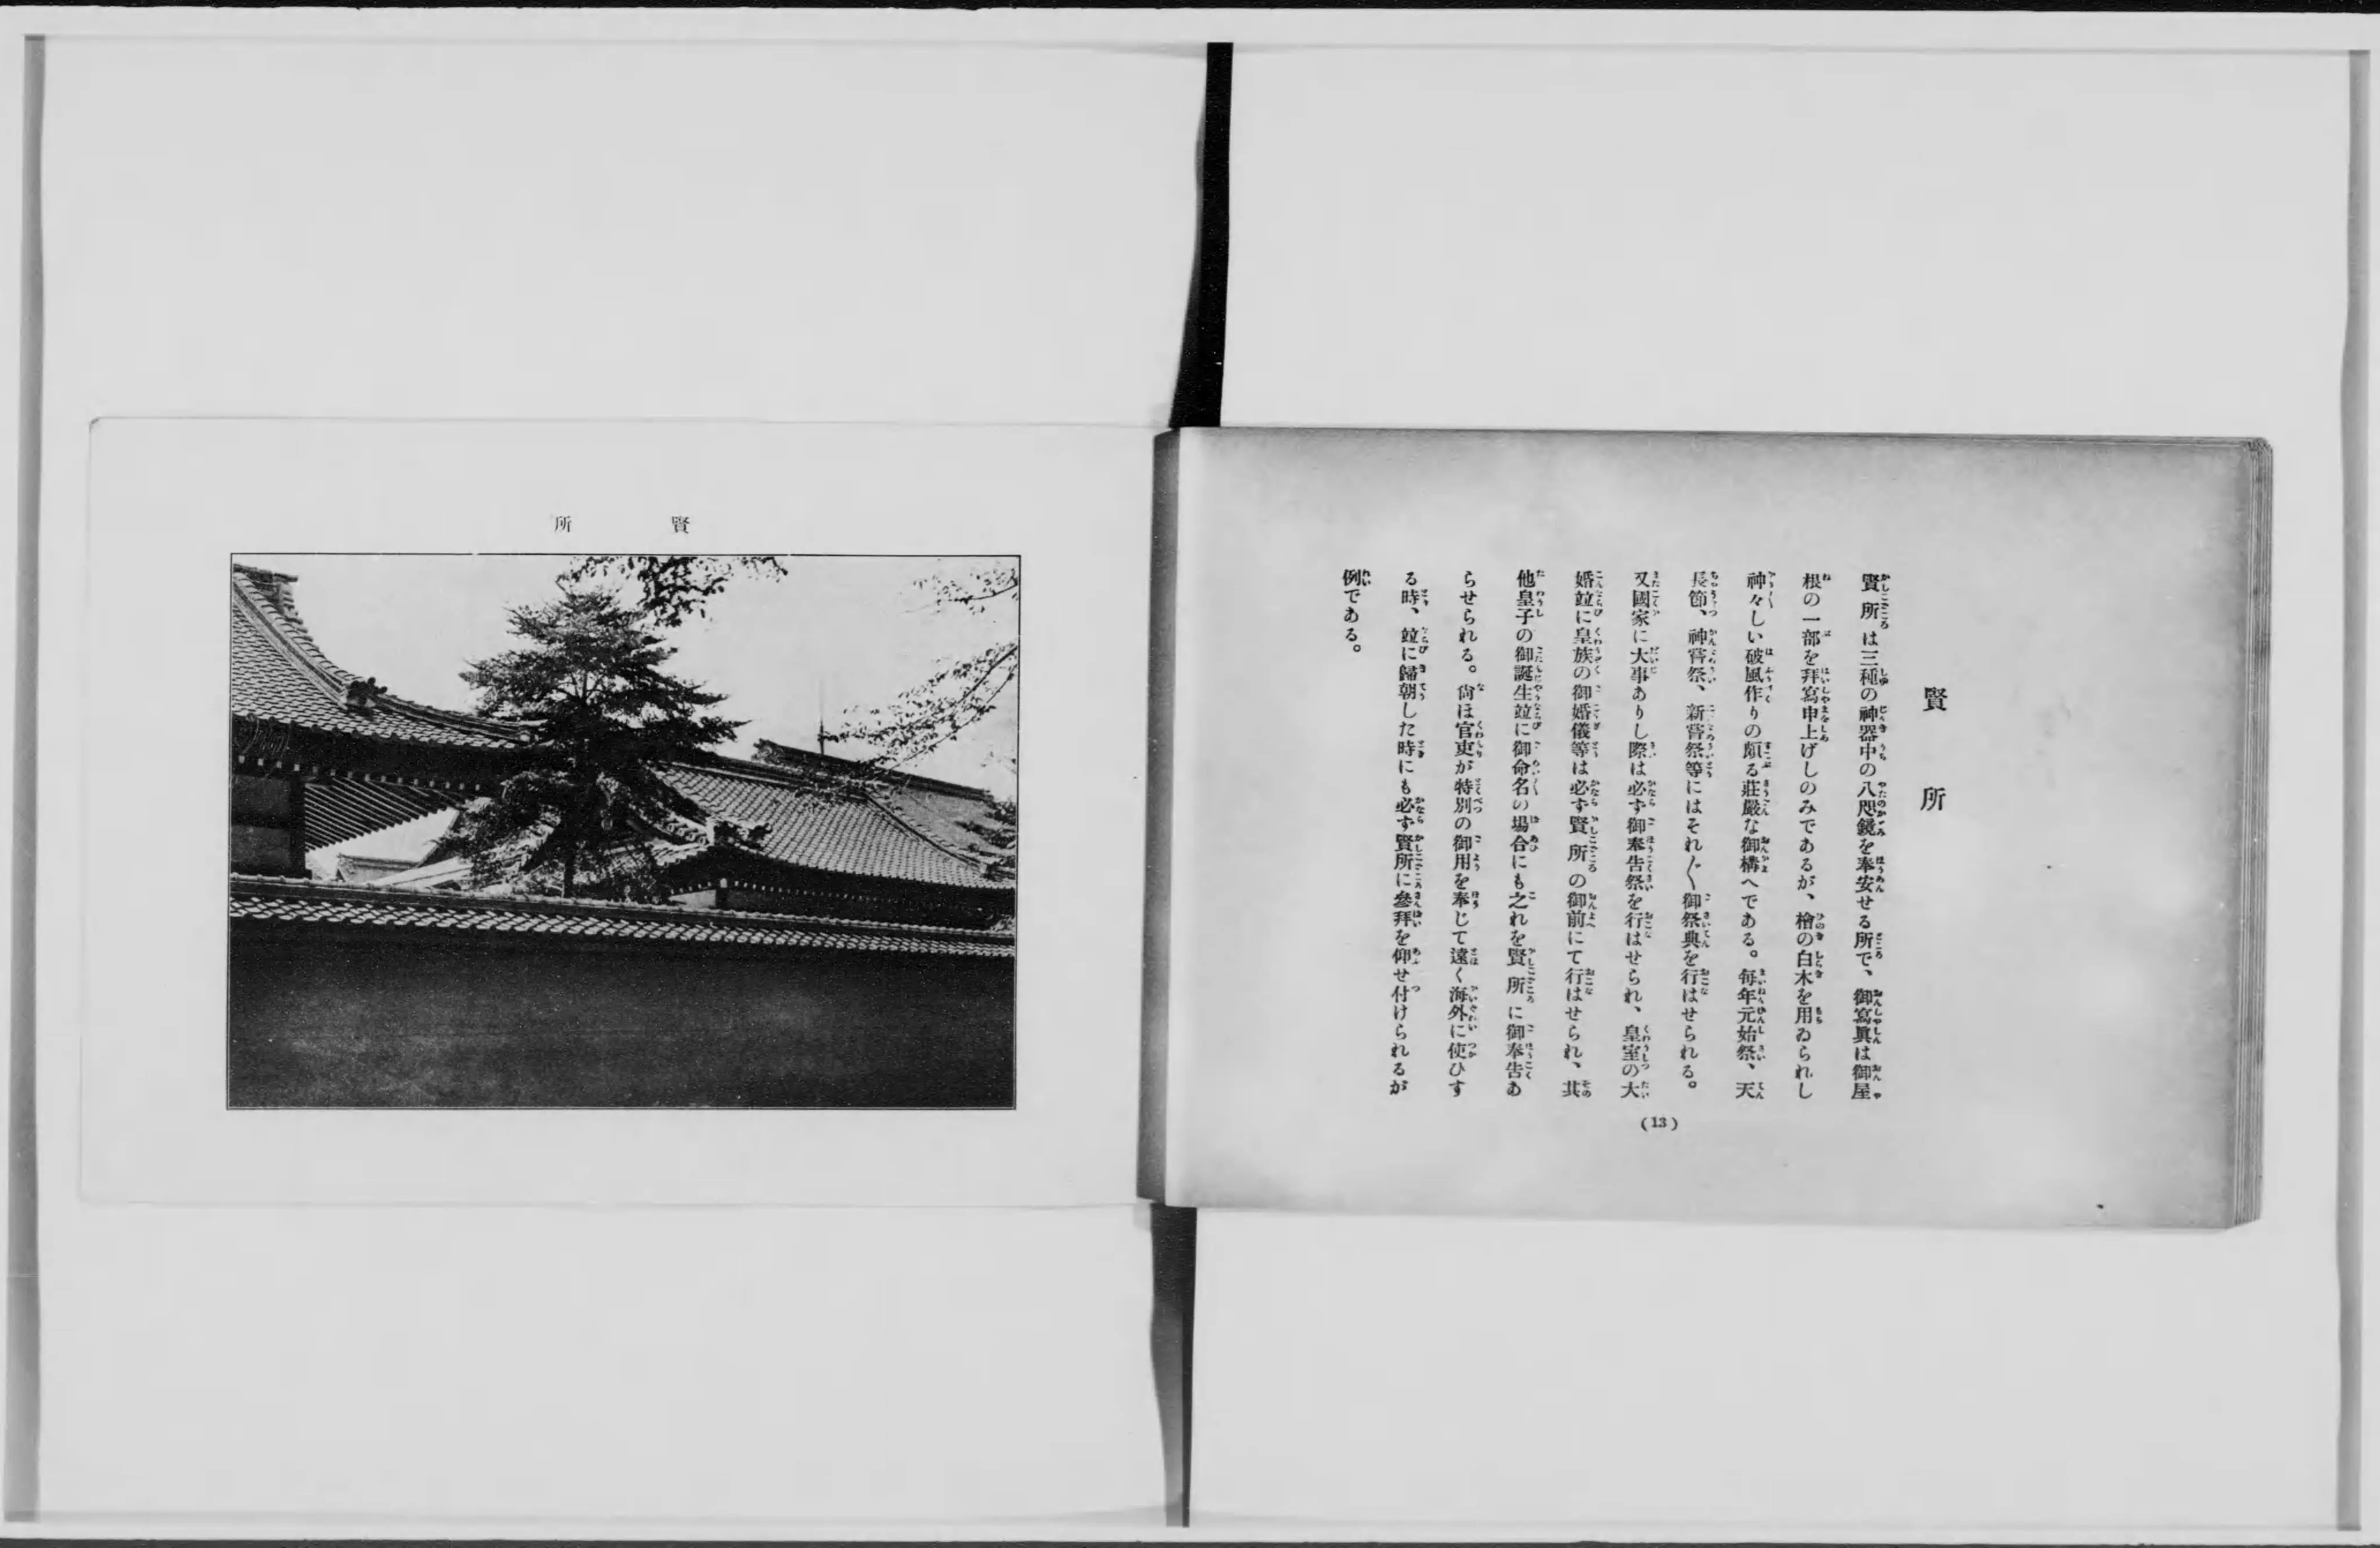 賢所
賢所は三種の神器中の八咫鏡を奉安せる所で、御寫眞は御屋
根の一部を拜寫申上げしのみであるが、檜の白木を用ゐられし
神々しい破風作りの頗る莊嚴な御構へである。每年元始祭、天
長節、神嘗祭、新嘗祭等にはそれ〲御祭典を行はせられる。
又國家に大事ありし際は必ず御奉告祭を行はせられ、皇室の大
婚竝に皇族の御婚儀等は必ず賢所の御前にて行はせられ、其
他皇子の御誕生竝に御命名の場合にも之れを賢所に御奉告あ
らせられる。尙ほ官吏が特別の御用を奉じて遠く海外に使ひす
る時、竝に歸朝した時にも必ず賢所に參拜を仰せ付けられるが
例である。
(13)
賢所